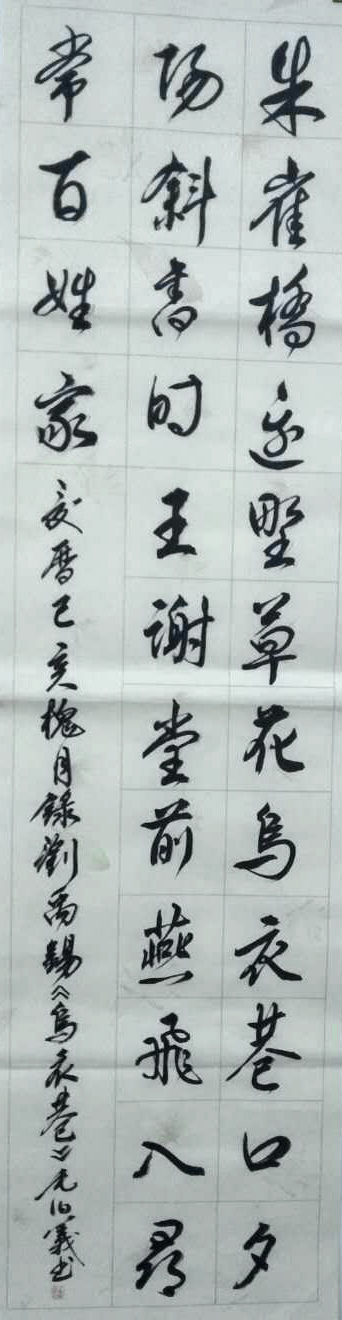 朱雀橋邊野草花烏衣巷口夕
陽斜舊时王謝堂前燕飛入尋
常百姓家
夏曆己亥槐月錄劉禹錫《烏衣巷》義书